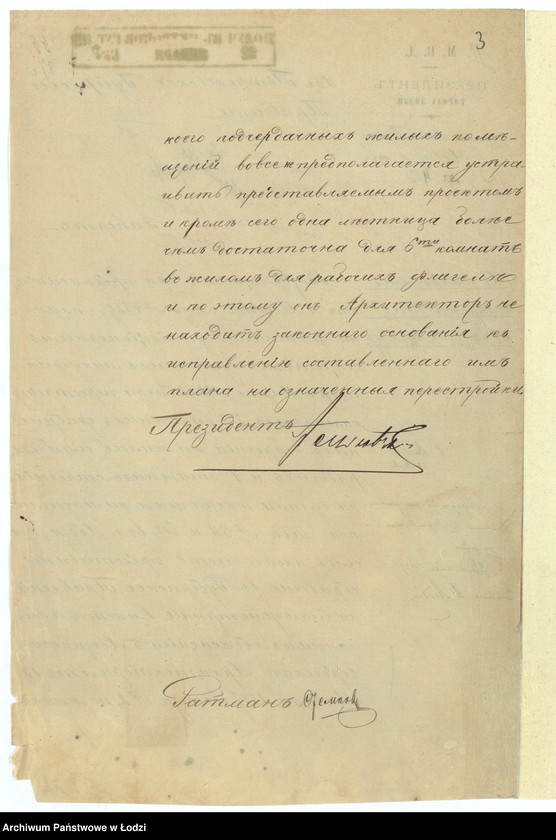 3
коего подчердачныхъ жилыхъ помѣ-
щеній вовсе не предполагается устра
ивать представляемымъ проектомъ
и кромѣ сего одна лѣстница болѣе
чѣмъ достаточна для 6ти комнатъ
въ жиломъ для рабочихъ флигелѣ
и по этому онъ Архитекторъ не
находитъ законнаго основанія къ
исправленію составленнаго имъ
плана на означенныя перестройки.
Президентъ
Ратманъ
Archiwum Państwowe w Łodzi